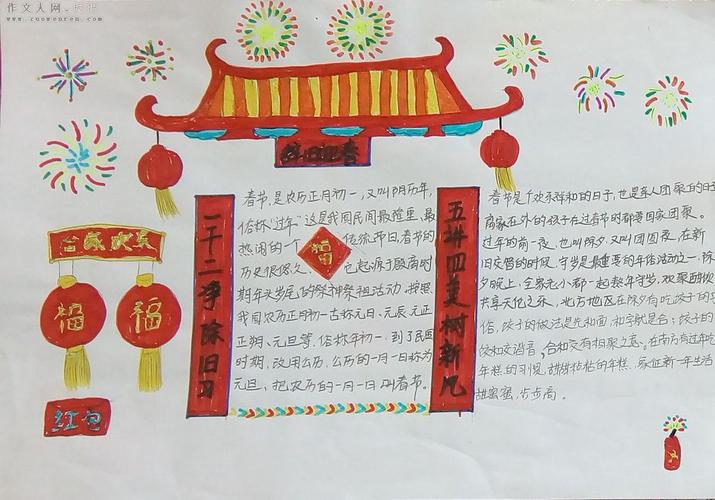 作文人网
www.zuowenren.com
辞旧迎春
一干二净除旧习
五讲四美树新风
合家欢乐
福
福
红包
福
春节,是农历正月初一,又叫阴历年,
俗称"过年"这是我国民间最隆重、最
热闹的一个传统节日。春节的
历史很悠久,它起源于殷商时
期年头岁尾的祭神祭祖活动。按照
我国农历正月初一古称元日、元辰、元正
正朔、元旦等,俗称年初一,到了民国
时期,改用公历,公历的一月一日称为
元旦,把农历的一月一日叫春节。
春节是个欢乐祥和的日子,也是亲人团聚的日子
离家在外的孩子在过春节时都要回家团聚。
过年的前一夜,也叫除夕,又叫团圆夜,在新
旧交替的时候,守岁是最重要的年俗活动之一,除
夕晚上,全家老小都一起熬年守岁,欢聚酣饮
共享天伦之乐,北方地区在除夕有吃饺子的习
俗,饺子的做法是先和面,和字就是合;饺子的
饺和交谐音,合和交有相聚之意。在南方有过年吃
年糕的习惯,甜甜粘粘的年糕,象征新一年生活
甜蜜蜜,步步高。